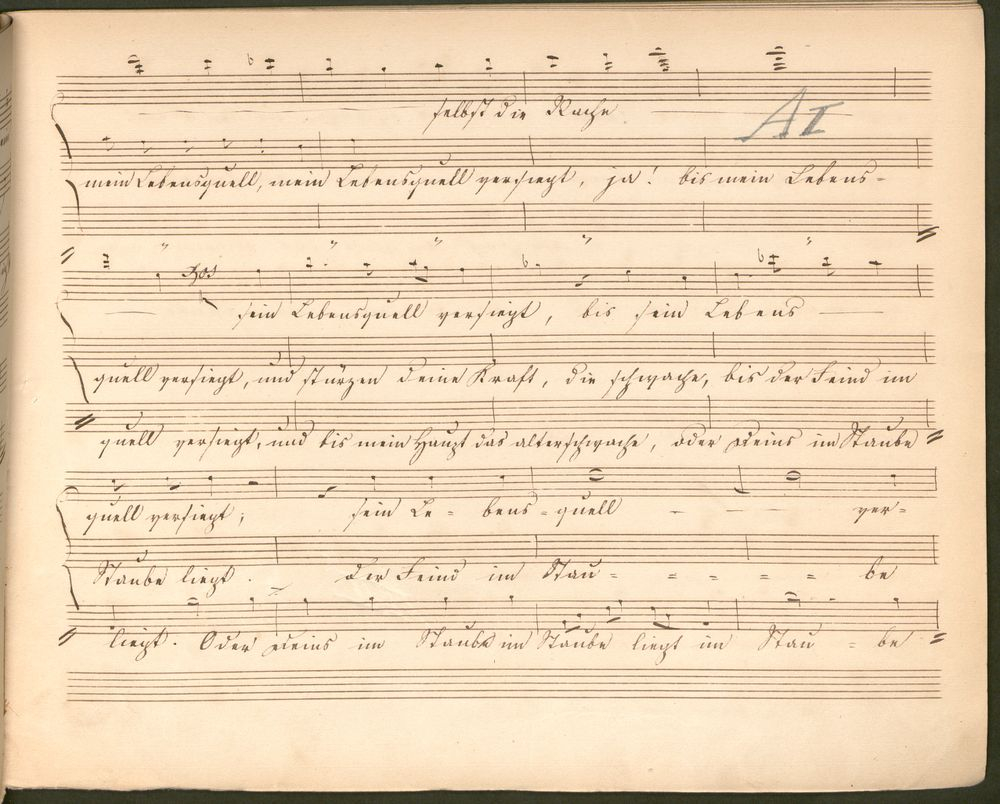 selbst die Rache
AI
mein Lebensquell, mein Lebensquell versiegt, ja! bis mein Lebens-
Chos
sein Lebensquell versiegt, bis sein Lebens
quell versiegt, und stürzen deine Kraft, die schwache, bis der Feind im
quell versiegt, und bis mein Haupt das altersschwache, oder deins im Staube
quell versiegt; sein Le-bens-quell - - - ver-
Staube liegt. der Feind im Stau- - - - - be
liegt. Oder deins im Staube im Staube liegt im Stau - be